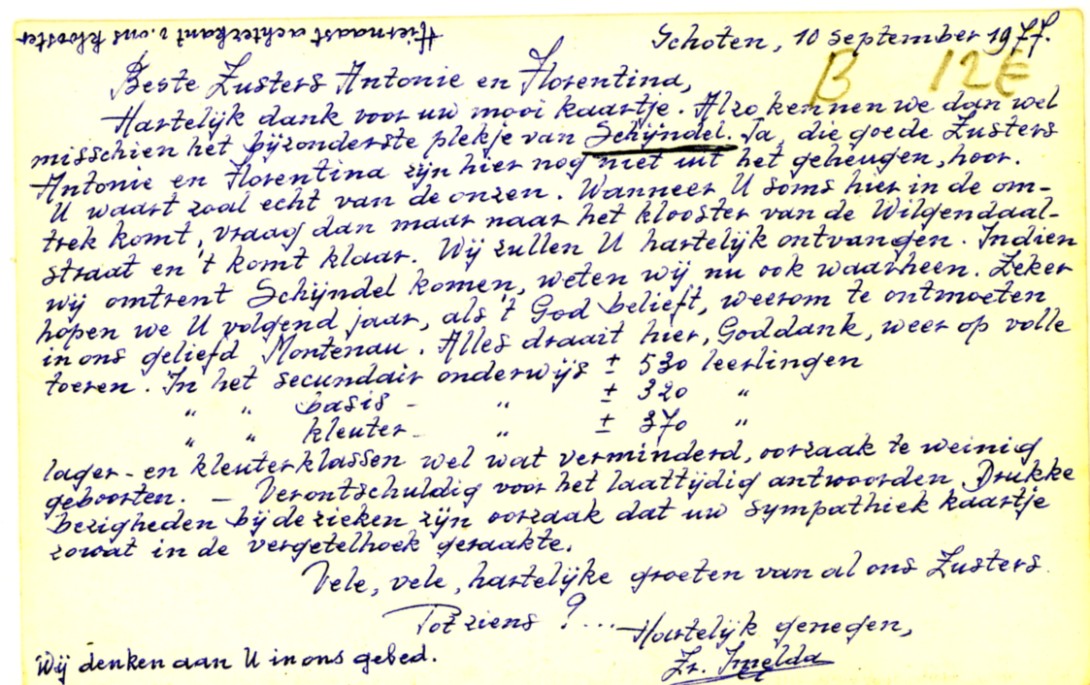 Hiernaast achterkant v. ons klooster
Schoten, 10 september 1977.
B 12€
Beste Zusters Antonie en Florentina,
Hartelijk dank voor uw mooi kaartje. Alzo kennen we dan wel
misschien het bijzonderste plekje van Schijndel. Ja, die goede Zusters
Antonie en Florentina zijn hier nog niet uit het geheugen, hoor.
U waart zoal echt van de onzen. Wanneer U soms hier in de om-
trek komt, vraag dan maar naar het klooster van de Wilgendaal-
straat en 't komt klaar. Wij zullen U hartelijk ontvangen. Indien
wij omtrent Schijndel komen, weten wij nu ook waarheen. Zeker
hopen we U volgend jaar, als 't God belieft, weerom te ontmoeten
in ons geliefd Montenau. Alles draait hier, Goddank, weer op volle
toeren. In het secundair onderwijs ± 530 leerlingen
" " basis - " ± 320 "
" " kleuter - " ± 370 "
lager- en kleuterklassen wel wat verminderd, oorzaak te weinig
geboorten. — Verontschuldig voor het laattijdig antwoorden. Drukke
bezigheden bij de zieken zijn oorzaak dat uw sympathiek kaartje
zowat in de vergetelhoek geraakte.
Vele, vele, hartelijke groeten van al ons Zusters.
Tot ziens ?... Hartelijk genegen,
Wij denken aan U in ons gebed.
Zr. Imelda